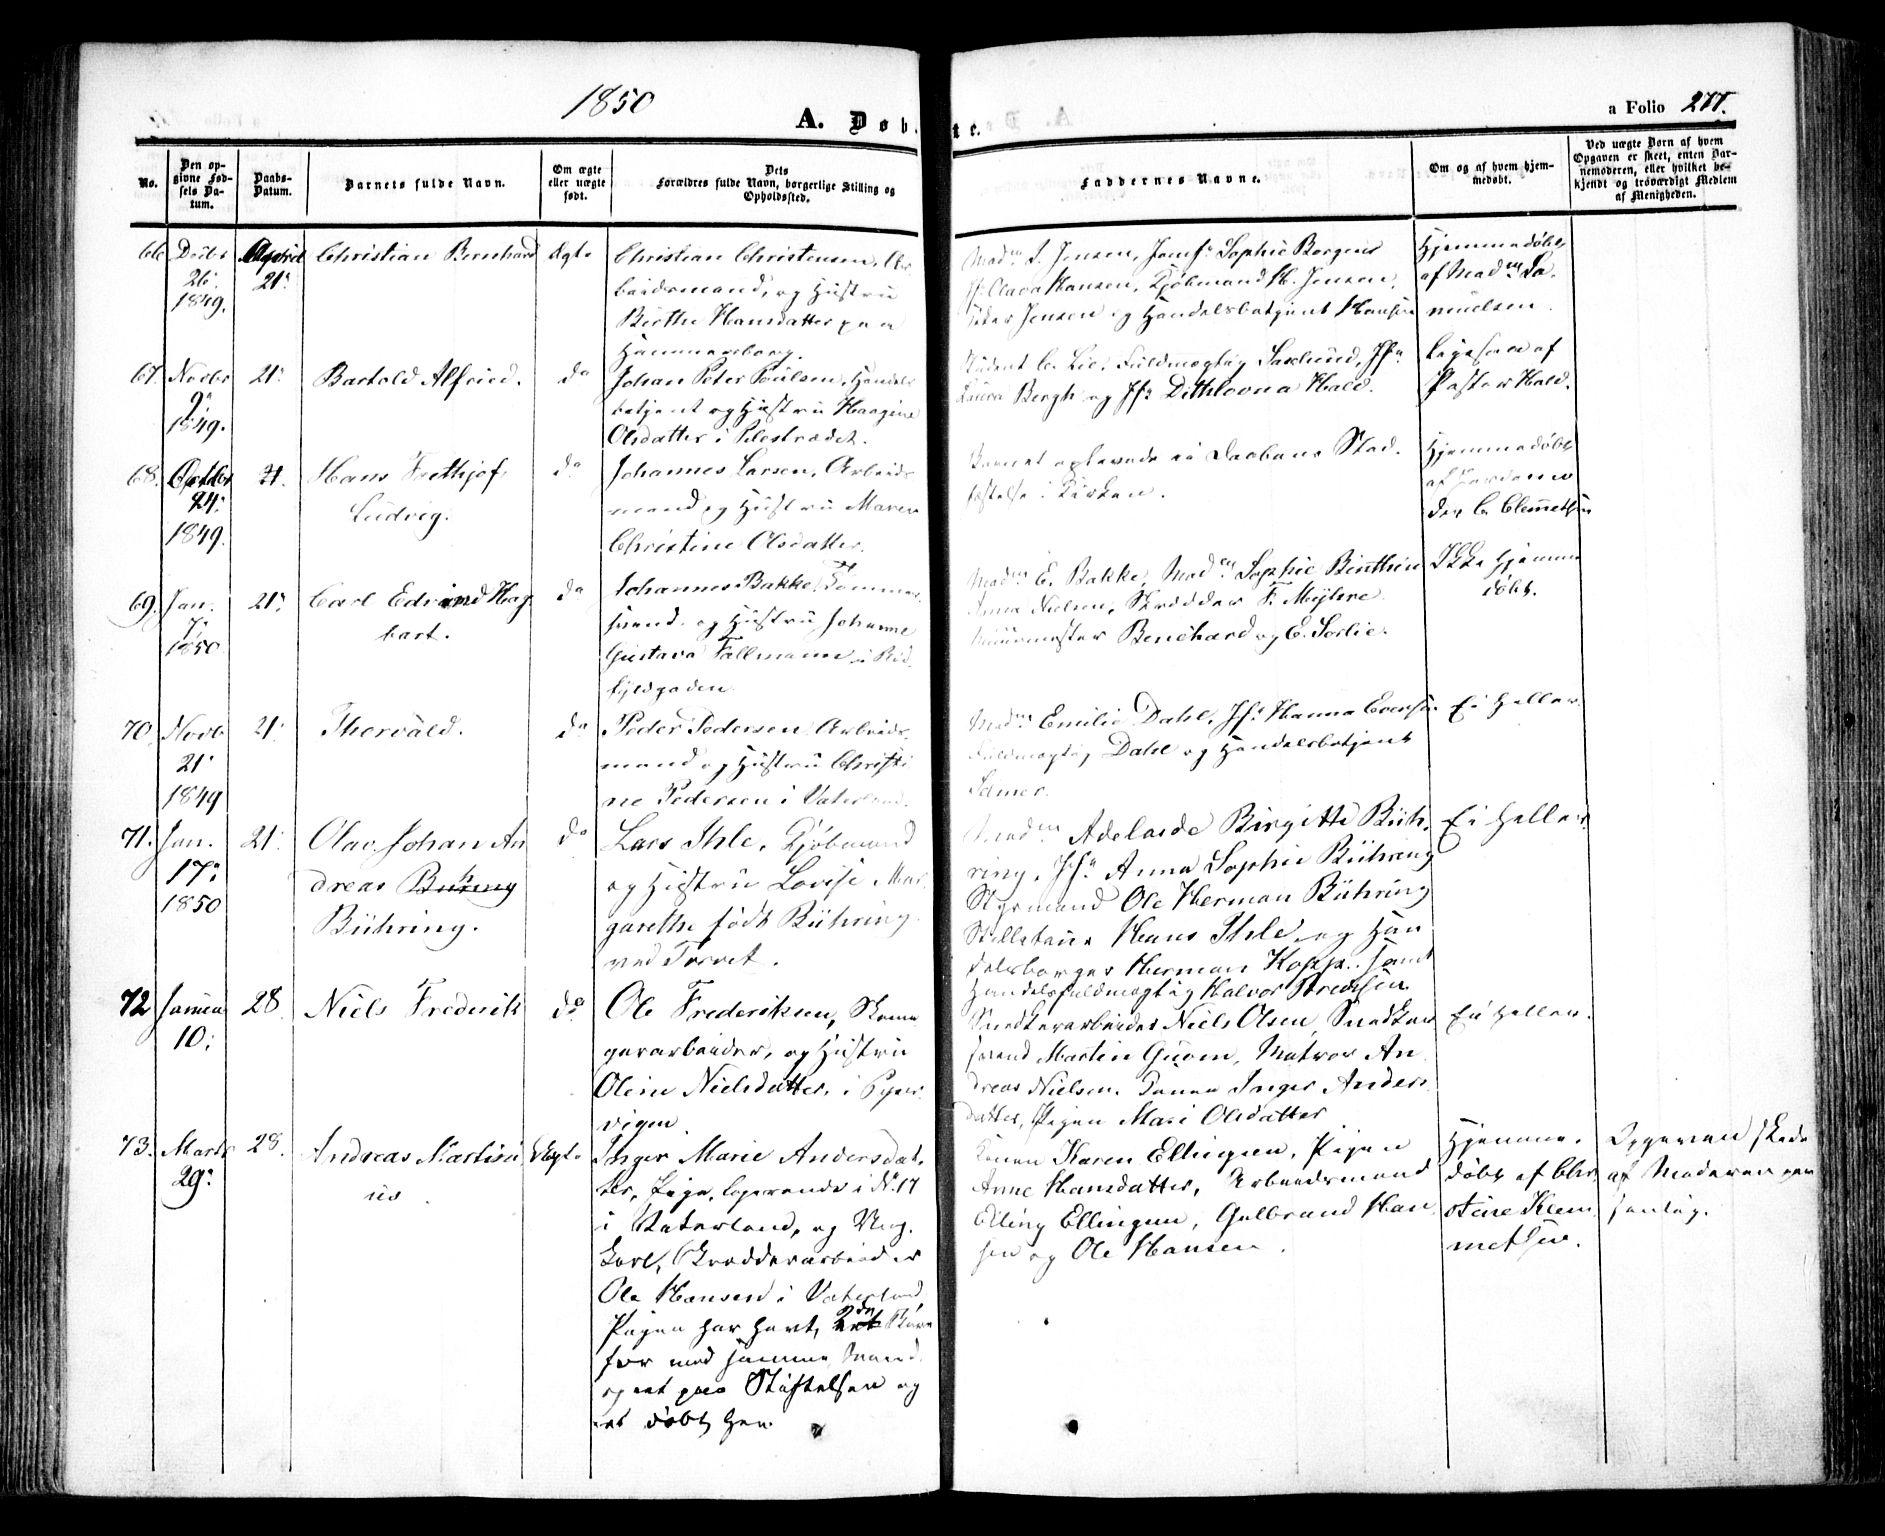 1850
A. Døb-
te.
a Folio 277.
No.
Den op-
givne Fød-
sels Da-
tum.
Daabs-
Datum.
Barnets fulde Navn.
Om ægte
eller uægte
født.
Dets
Forældres fulde Navn, borgerlige Stilling og
Opholdssted.
Faddernes Navne.
Om og af hvem hjem-
medøbt.
Ved uægte Børn af hvem
Opgaven er skeet, enten Bar-
nemoderen, eller hvilket be-
kjendt og troværdigt Medlem
af Menigheden.
66
Decbr
26
1849.
April
21
Christian Bernhard
Ægte
Christian Christensen, Ar
beidsmand, og Hustru
Berthe Hansdatter paa
Hammersborg.
Madm J. Jensen, Jomfr Sophie Borgens
Jf. Olava Hansen, Kjøbmand H. Jensen,
Jensen og Handelsbetjent Hansen
Hjemmedøbt
af Madm Sa-
muelsen.
67.
Novbr
9
1849.
21
Bartold Alfred.
do
Johan Peter Poulsen, Handels
betjent og Hustru Haagine
Olsdatter i Pilestrædet.
Student C. Lie, Fuldmægtig Saxlund, Jfr
Laura Bergh og Jfr Dethlovna Hald.
Ligesaa af
Pastor Hald.
68.
Octbr
24
1849.
21.
Hans Frithjof
Ludvig.
do
Johannes Larsen, Arbeids
mand og Hustru Maren
Christine Olsdatter.
Barnet opløvede ei Daabens Stad-
fæstelse i Kirken.
Hjemmedøbt
af Jordemo
der C. Clemetsen
69.
Jan.
7
1850
21
Carl Edvard Hag
bart.
do
Johannes Bakke, Tømmer
svend og Hustru Johanne
Gustava Fallmann i Rød
fyldgaden
Madm E. Bakke, Madm Sophie Benthin
Anna Nielsen, Skrædder F. Mylere
Muurmester Benchard og E. Sørlie.
Ikke hjemme
døbt.
70.
Novb
21
1849
21
Thorvald.
do
Peder Pedersen Arbeids
mand og Hustru Christi
ne Pedersen i Vaterland.
Madm Emilie Dahl, Jfr Hanna Evensen
Fuldmægtig Dahl og Handelsbetjent
Selmer.
Ei heller
71.
Jan.
17
1850
21
Olav Johan An
dreas Buhring
Bühring.
do
Lars Ihle, Kjøbmand
og Hustru Lovise Mar
garethe født Bühring
ved Torvet.
Madm Adelaide Birgitte Büh
ring, Jfr Anna Sophie Bühring
Styrmand Ole Herman Bühring
Hans Ihle og Han
delsborger Herman Kopp. samt
Handelsfuldmægtig Halvor Bredesen
Ei heller.
72
Januar
10
28
Niels Frederik
do
Ole Frederiksen, Skoma
gerarbeider, og Hustru
Oline Nielsdatter, i Piper
vigen
Snedkerarbeider Niels Olsen, Snedker
svend Martin Guven, Matros An
dreas Nielsen. Konen Inger Anders
datter, Pigen Mari Olsdatter
Ei heller.
73.
Marts
29
28.
Andreas Martini
us.
Uægte
Inger Marie Andersdat
ter, Pige, logerende i N. 17
i Vaterland, og Ung
karl, Skrædderarbeider
Ole Hansen i Vaterland,
Pigen har havt 2de Børn
før med samme Mand
og eet paa Stiftelsen og
et døbt her
Konen Karen Ellingsen, Pigen
Anne Hansdatter, Arbeidsmand
Elling Ellingsen, Gulbrand Han
sen og Ole Hansen.
Hjemme-
døbt af Chri
stine Klem
metsen.
Opgaven skede
af Moderen per
sonlig.